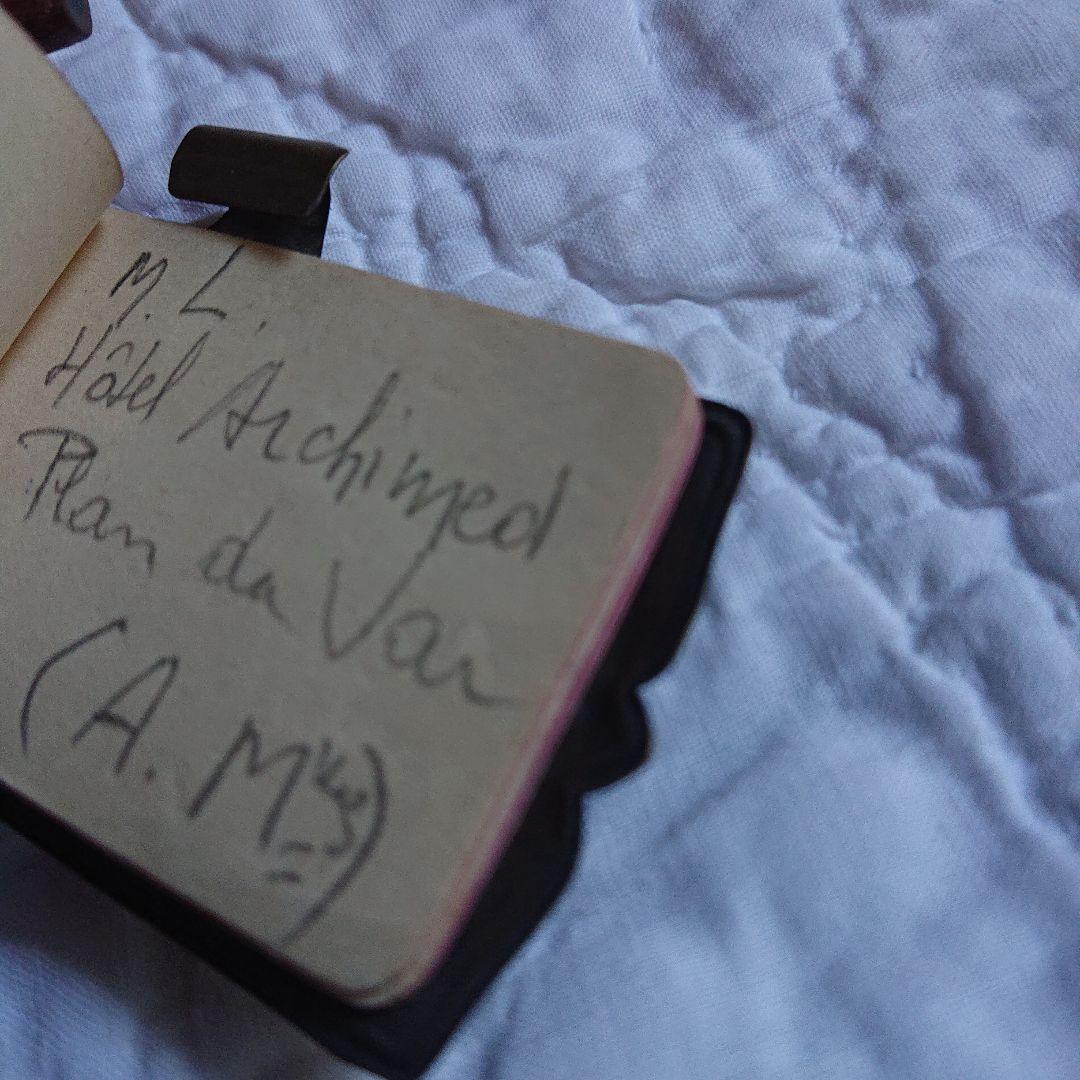 M. L.
Hôtel Archimed
Plan du Var
(A. Mmes)